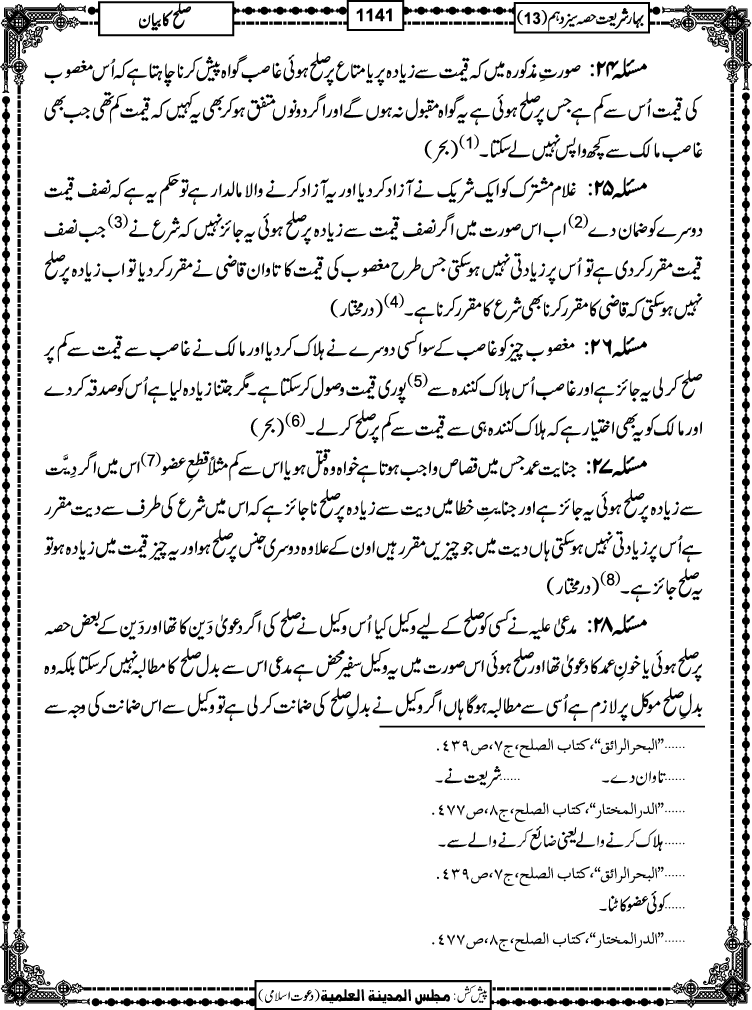 بہار شریعت حصہ سیزدہم (13)
1141
صلح کا بیان
مسئلہ ۲۴: صورتِ مذکورہ میں کہ قیمت سے زیادہ پر یا متاع پر صلح ہوئی غاصب گواہ پیش کرنا چاہتا ہے کہ اُس مغصوب
کی قیمت اُس سے کم ہے جس پر صلح ہوئی ہے یہ گواہ مقبول نہ ہوں گے اور اگر دونوں متفق ہو کر بھی یہ کہیں کہ قیمت کم تھی جب بھی
غاصب مالک سے کچھ واپس نہیں لے سکتا۔(1) (بحر)
مسئلہ ۲۵: غلام مشترک کو ایک شریک نے آزاد کر دیا اور یہ آزاد کرنے والا مالدار ہے تو حکم یہ ہے کہ نصف قیمت
دوسرے کو ضمان دے(2) اب اس صورت میں اگر نصف قیمت سے زیادہ پر صلح ہوئی یہ جائز نہیں کہ شرع نے(3) جب نصف
قیمت مقرر کر دی ہے تو اُس پر زیادتی نہیں ہوسکتی جس طرح مغصوب کی قیمت کا تاوان قاضی نے مقرر کر دیا تو اب زیادہ پر صلح
نہیں ہوسکتی کہ قاضی کا مقرر کرنا بھی شرع کا مقرر کرنا ہے۔(4) (درمختار)
مسئلہ ۲۶: مغصوب چیز کو غاصب کے سوا کسی دوسرے نے ہلاک کر دیا اور مالک نے غاصب سے قیمت سے کم پر
صلح کر لی یہ جائز ہے اور غاصب اُس ہلاک کنندہ سے(5) پوری قیمت وصول کر سکتا ہے۔ مگر جتنا زیادہ لیا ہے اُس کو صدقہ کر دے
اور مالک کو یہ بھی اختیار ہے کہ ہلاک کنندہ ہی سے قیمت سے کم پر صلح کر لے۔(6) (بحر)
مسئلہ ۲۷: جنایت عمد جس میں قصاص واجب ہوتا ہے خواہ وہ قتل ہو یا اس سے کم مثلاً قطع عضو(7) اس میں اگر دِیَّت
سے زیادہ پر صلح ہوئی یہ جائز ہے اور جنایتِ خطا میں دیت سے زیادہ پر صلح ناجائز ہے کہ اس میں شرع کی طرف سے دیت مقرر
ہے اُس پر زیادتی نہیں ہوسکتی ہاں دیت میں جو چیزیں مقرر ہیں اون کے علاوہ دوسری جنس پر صلح ہو اور یہ چیز قیمت میں زیادہ ہو تو
یہ صلح جائز ہے۔(8) (درمختار)
مسئلہ ۲۸: مدعیٰ علیہ نے کسی کو صلح کے لیے وکیل کیا اُس وکیل نے صلح کی اگر دعویٰ دَین کا تھا اور دَین کے بعض حصہ
پر صلح ہوئی یا خونِ عمد کا دعویٰ تھا اور صلح ہوئی اس صورت میں یہ وکیل سفیر محض ہے مدعی اس سے بدل صلح کا مطالبہ نہیں کر سکتا بلکہ وہ
بدلِ صلح موکل پر لازم ہے اُسی سے مطالبہ ہوگا ہاں اگر وکیل نے بدلِ صلح کی ضمانت کر لی ہے تو وکیل سے اس ضمانت کی وجہ سے
......”البحرالرائق“، کتاب الصلح، ج٧، ص٤٣٩.
......تاوان دے۔ ......شریعت نے۔
......”الدرالمختار“، کتاب الصلح، ج٨، ص٤٧٧.
......ہلاک کرنے والے یعنی ضائع کرنے والے سے۔
......”البحرالرائق“، کتاب الصلح، ج٧، ص٤٣٩.
......کوئی عضو کاٹنا۔
......”الدرالمختار“، کتاب الصلح، ج٨، ص٤٧٧.
پیش کش: مجلس المدینة العلمیة (دعوت اسلامی)